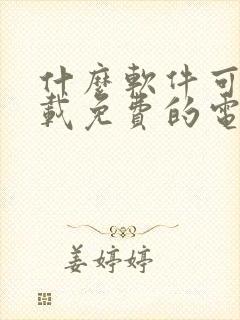 什麼軟件可
載免費的電
姜婷婷